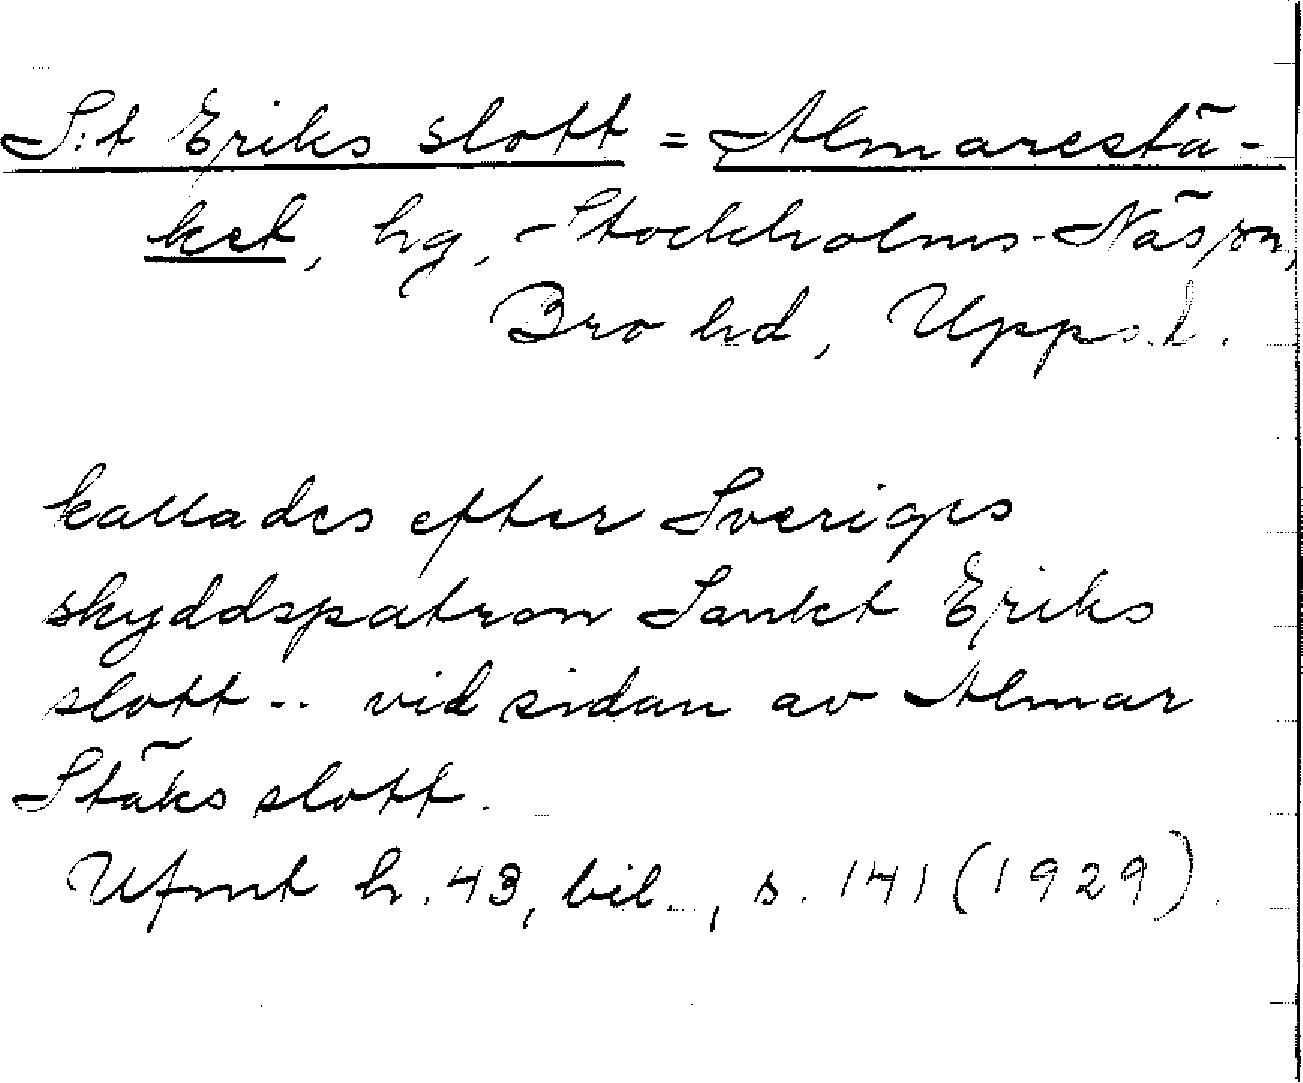 S:t Eriks slott = Almarestä-
ket, hg, Stockholms-Näs sn,
Bro hd, Upps.l.
kallades efter Sveriges
skyddspatron Sankt Eriks
slott .. vid sidan av Almar
Stäks slott.
Ufmt h. 43, bil., s. 141 (1929).